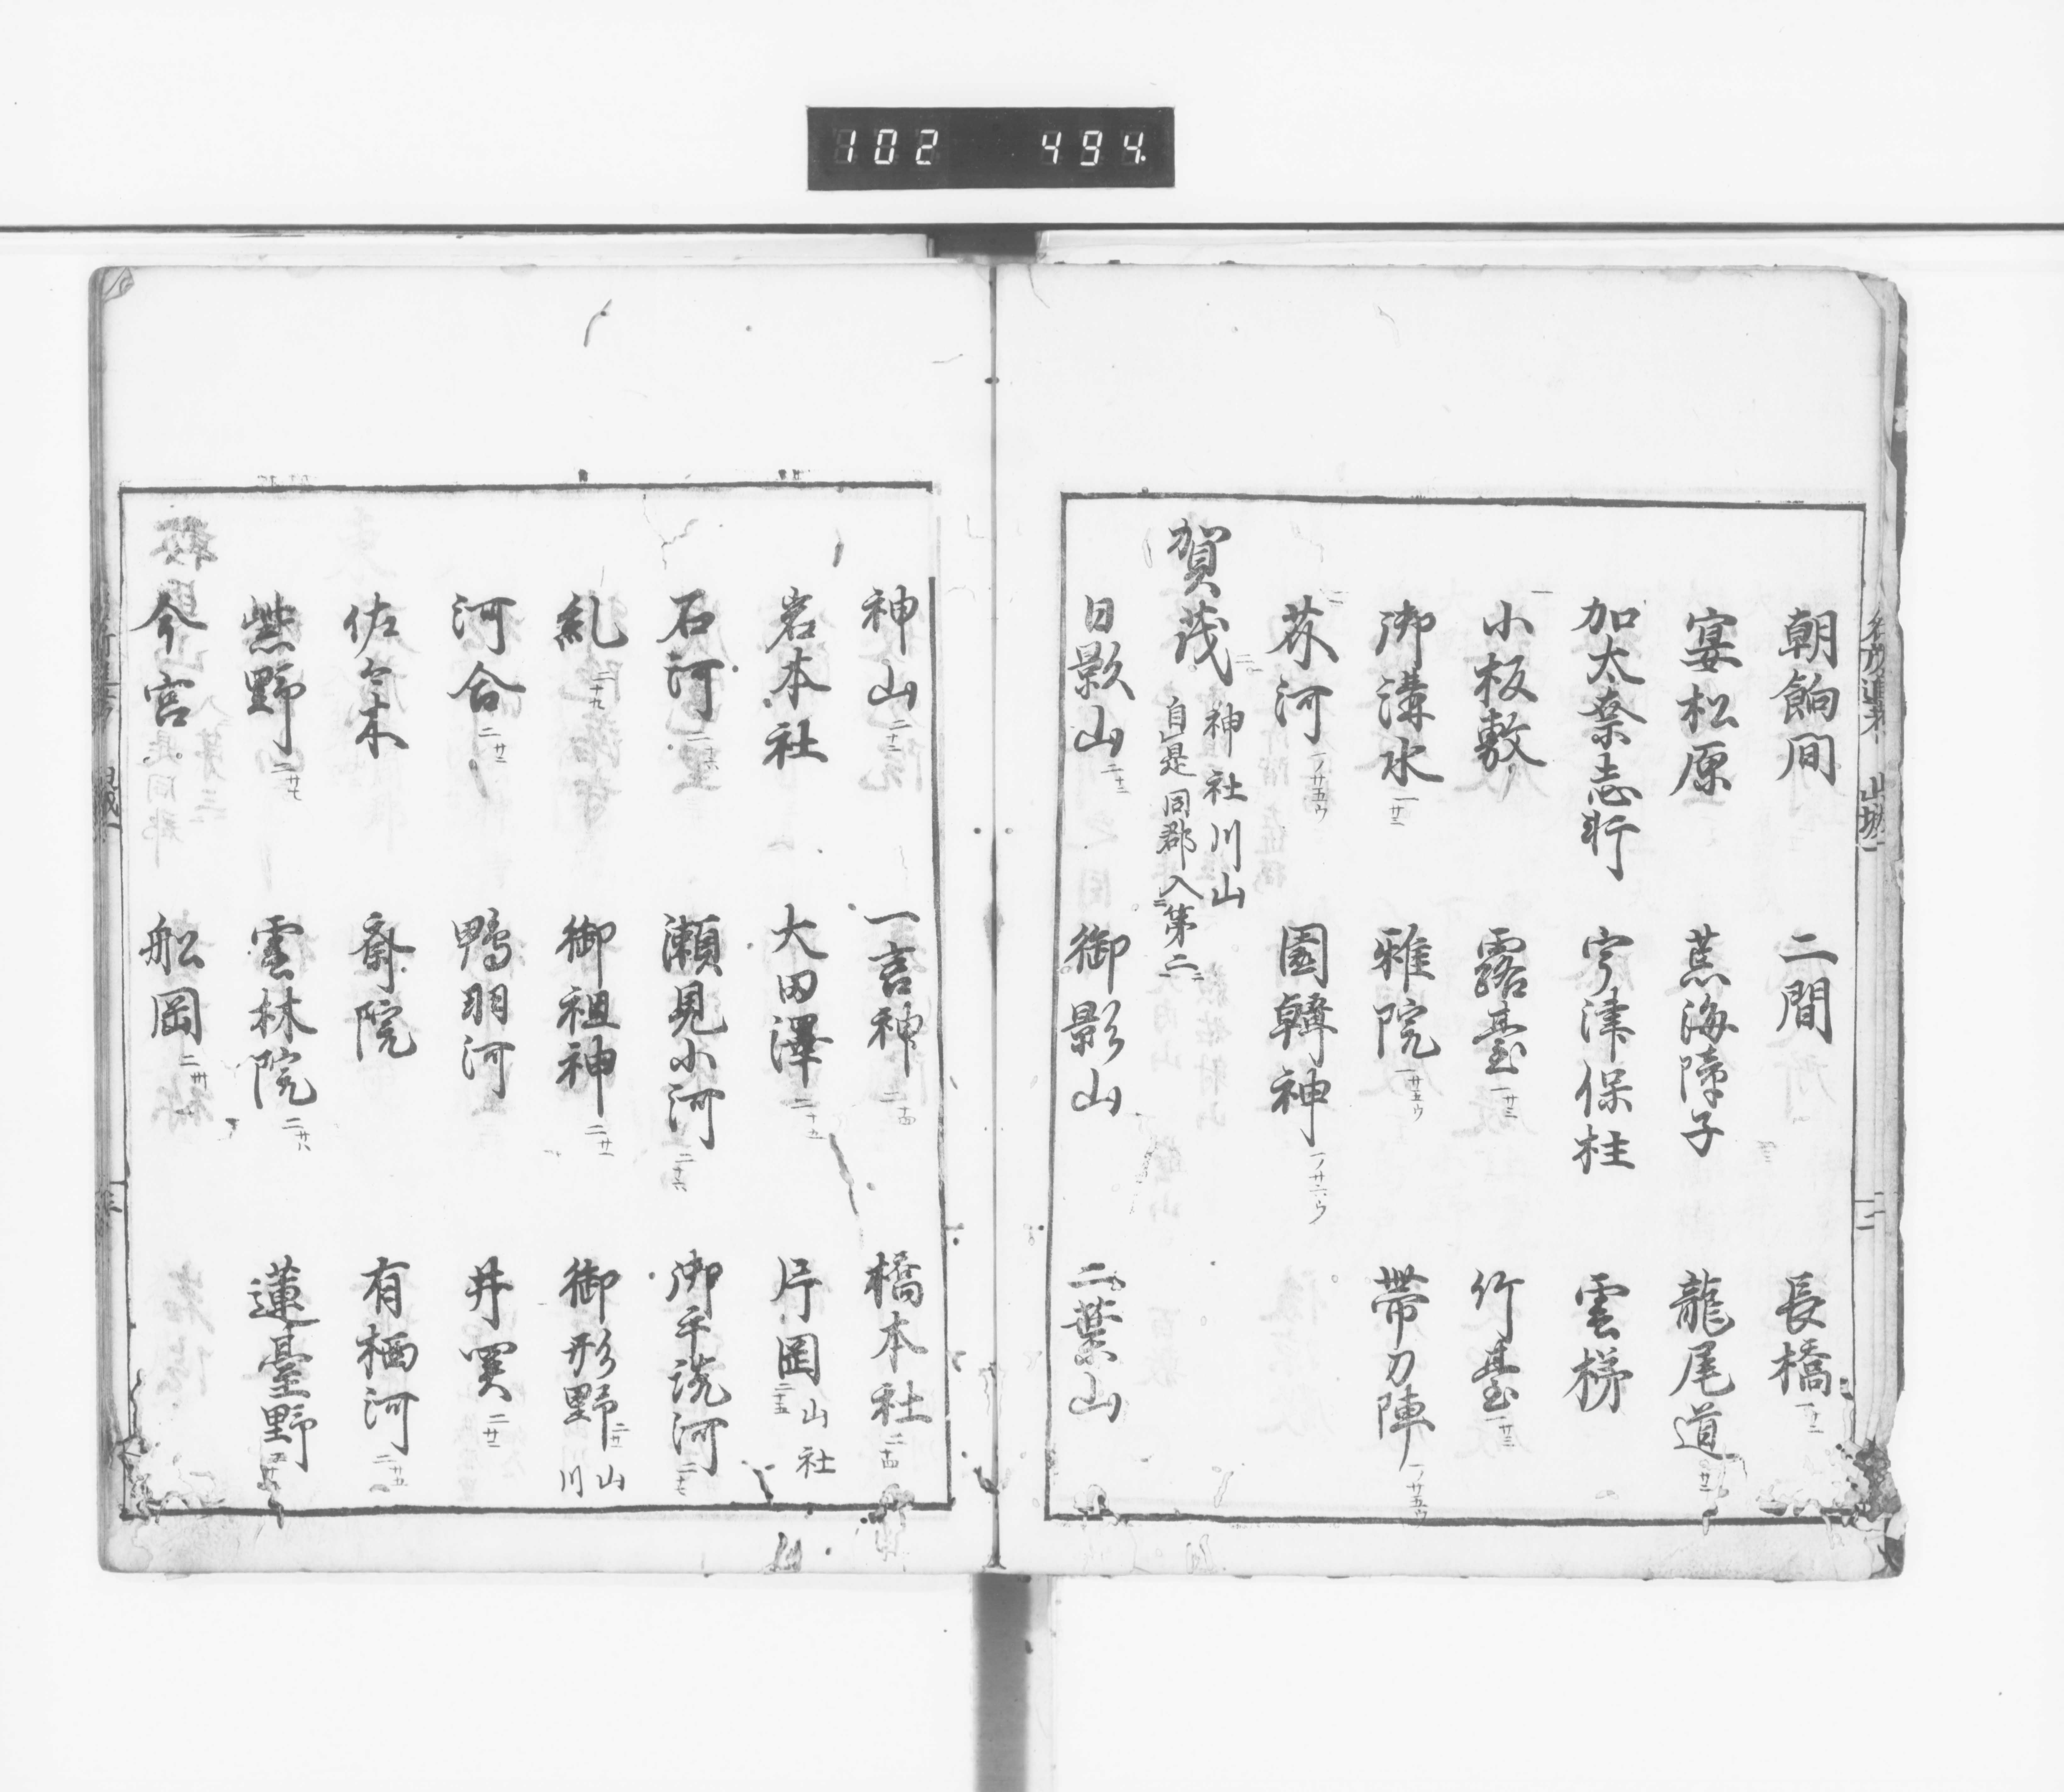 102 494
朝餉間 二間 長橋
宴松原 荒海障子 龍尾道
加太奈志町 宇津保柱 雲梯
小板敷 露臺 竹臺
御溝水 雅院 帯刀陣
芥河 園韓神
賀茂 神社川山
自是同郡入第二
日影山 御影山 二葉山
神山 一言神 橋本社
岩本社 大田澤 片岡 山社
石河 瀬見小河 御手洗河
糺 御祖神 御形野 山川
河合 鴨羽河 井買
佐々木 斎院 有栖河
紫野 雲林院 蓮臺野
今宮 舩岡